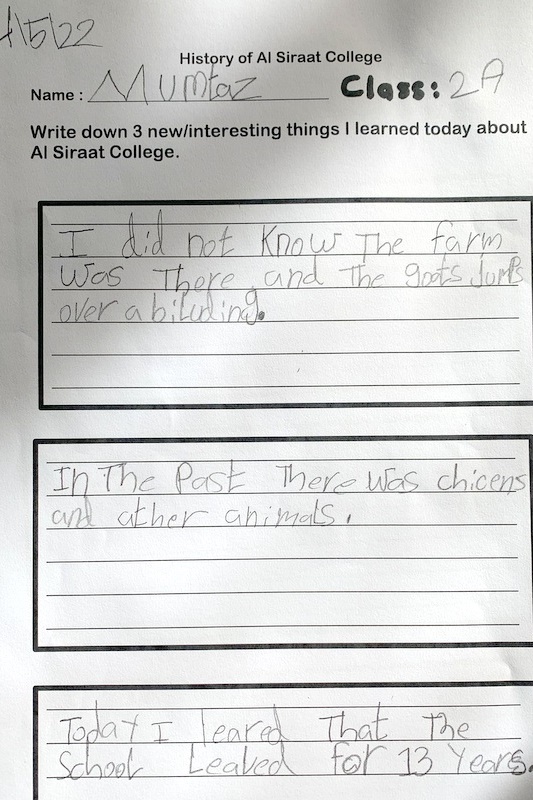 /5/22
History of Al Siraat College
Name : Mumtaz Class: 2A
Write down 3 new/interesting things I learned today about
Al Siraat College.
I did not know The farm
Was There and The goats jumps
over a biluding.
In The Past There was chicens
and ather animals.
Today I leared That The
School Leabed for 13 Years.